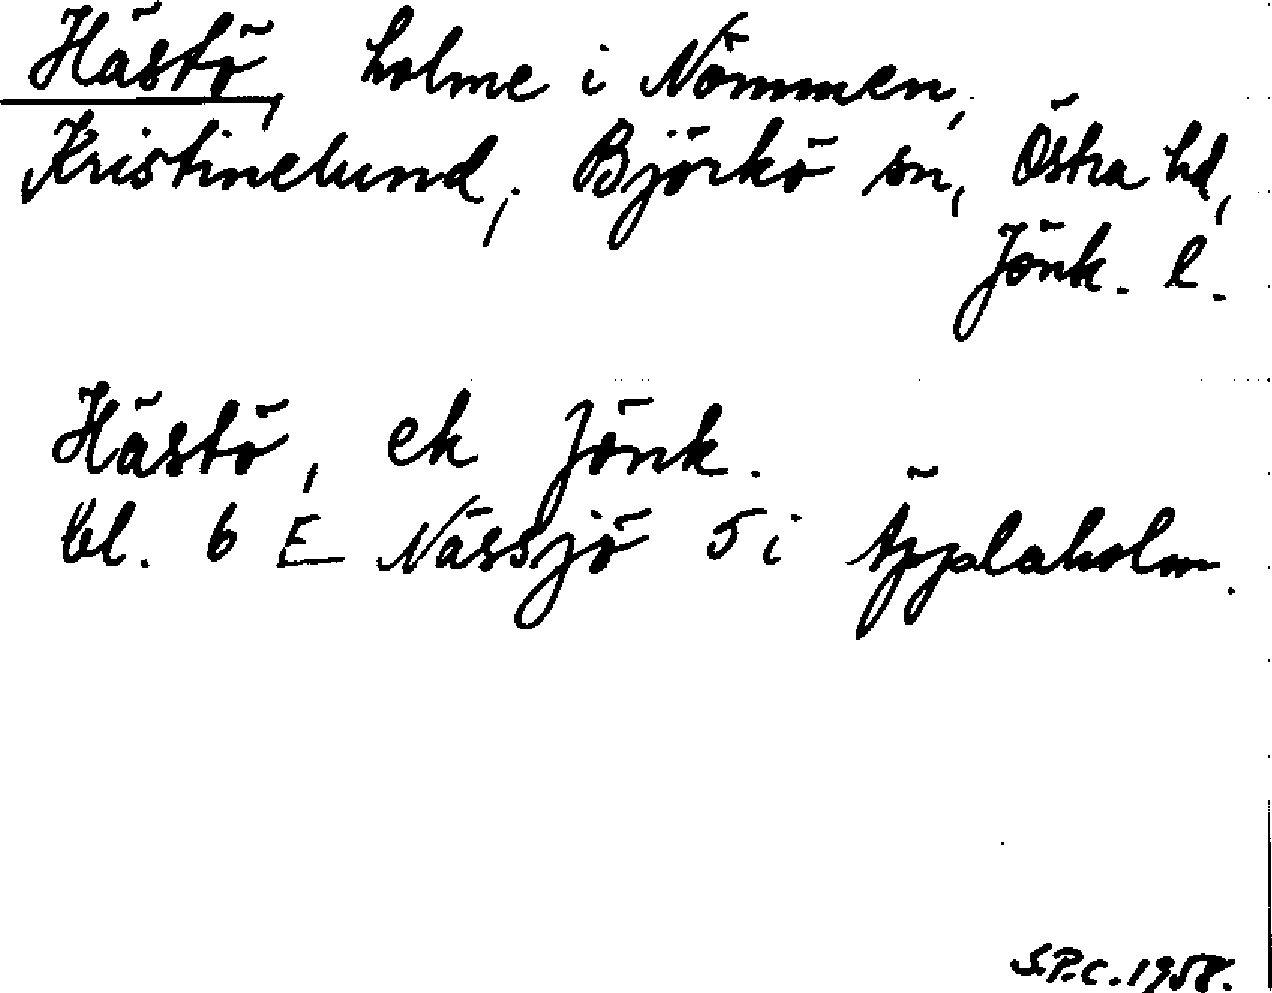 Hästö, holme i Nömmen,
Kristinelund, Björkö sn, Östra hd,
Jönk. l.
Hästö, ek Jönk.
bl. 6 E Nässjö 5 i Äpplaholm.
S.P.C. 1958.